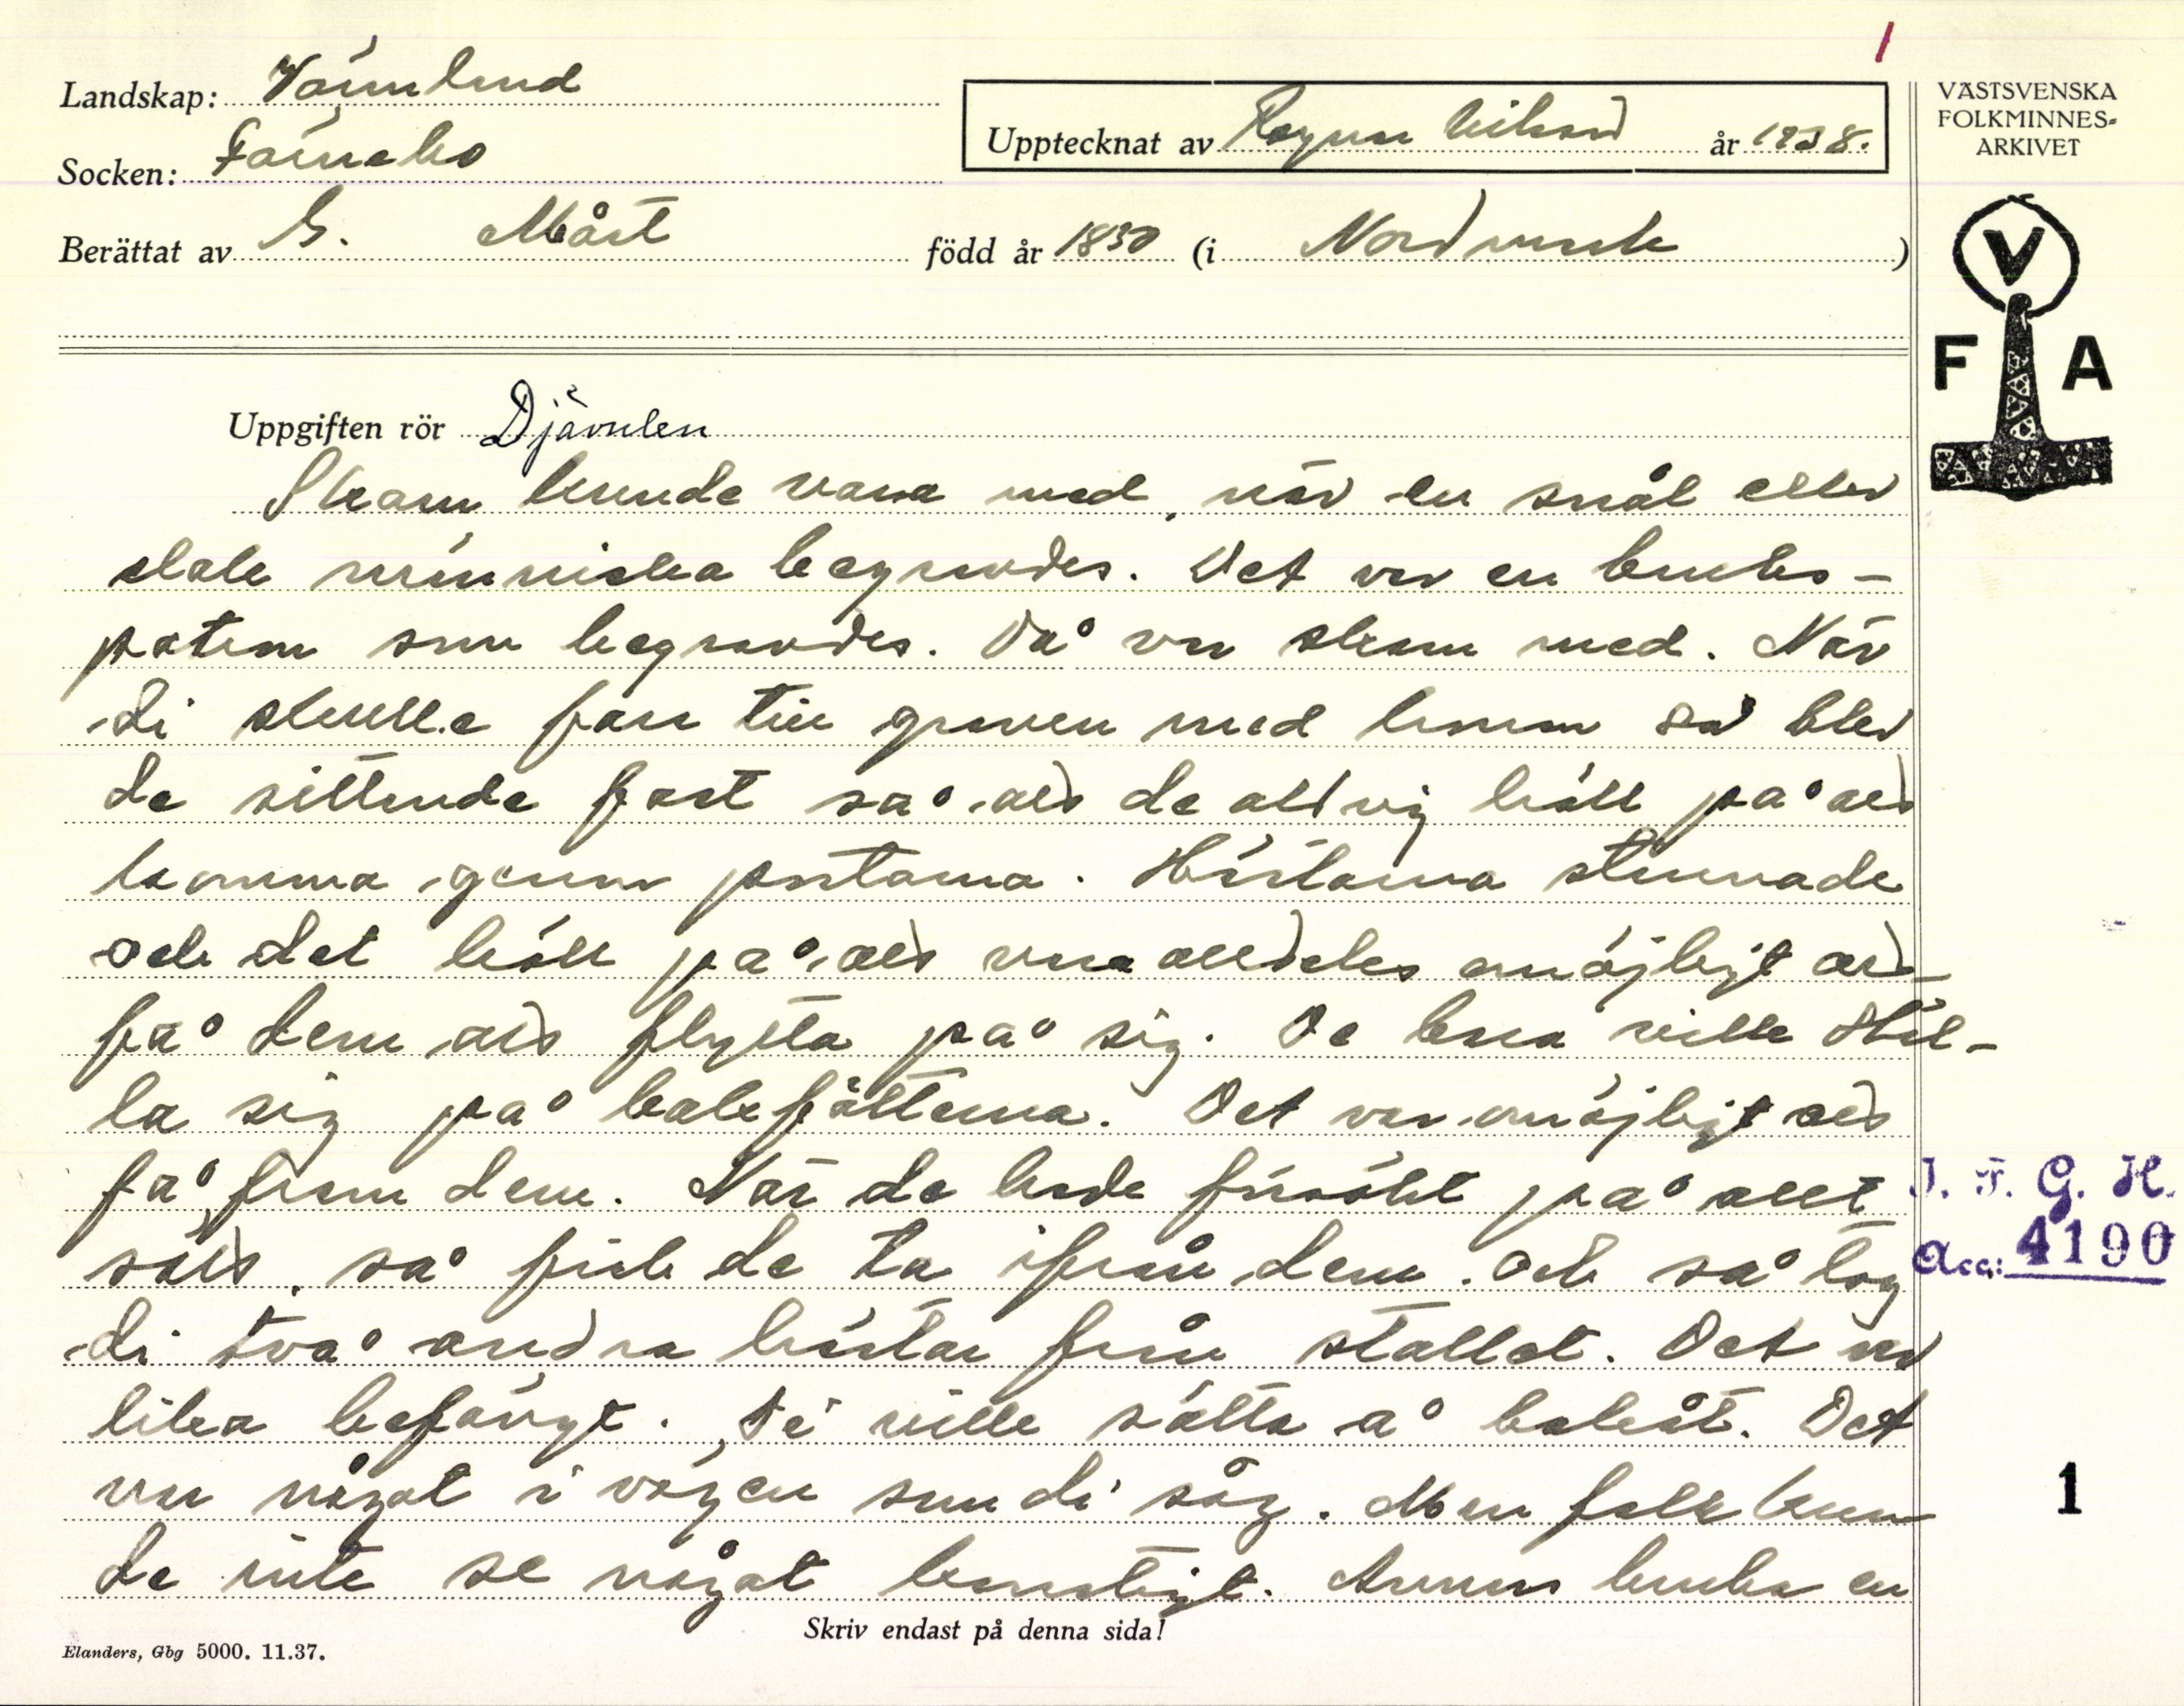 Landskap: Värmland
Socken: Färnebo
Upptecknat av Ragnar Nilsson år 1938.
Berättat av G. Måst född år 1830 (i Nordmark)
VÄSTSVENSKA
FOLKMINNES-
ARKIVET
V
F A
1
Uppgiften rör Djävulen
Skam kunde vara med, när en snål eller
elak människa begravdes. Det var en bruks-
patron som begravdes. Då var skam med. När
di skulle fara till graven med honom så blev
de sittende fast så att de aldrig höll på att
komma genom portarna. Hästarna stannade
och det höll på att vara alldeles omöjligt att
få dem att flytta på sig. De bara ville stäl-
la sig på bakfötterna. Det var omöjligt att
få fram dem. När de hade försökt på allt
sätt, så fick de ta ifrån dem. Och så tog
di två andra hästar från stallet. Det var
lika befängt. Di ville sätta å bakåt. Det
var något i vägen som di såg. Men folk kun
de inte se något konstigt. Annars bruka en
I. F. G. H.
Acc: 4190
1
Skriv endast på denna sida!
Elanders, Gbg 5000. 11.37.